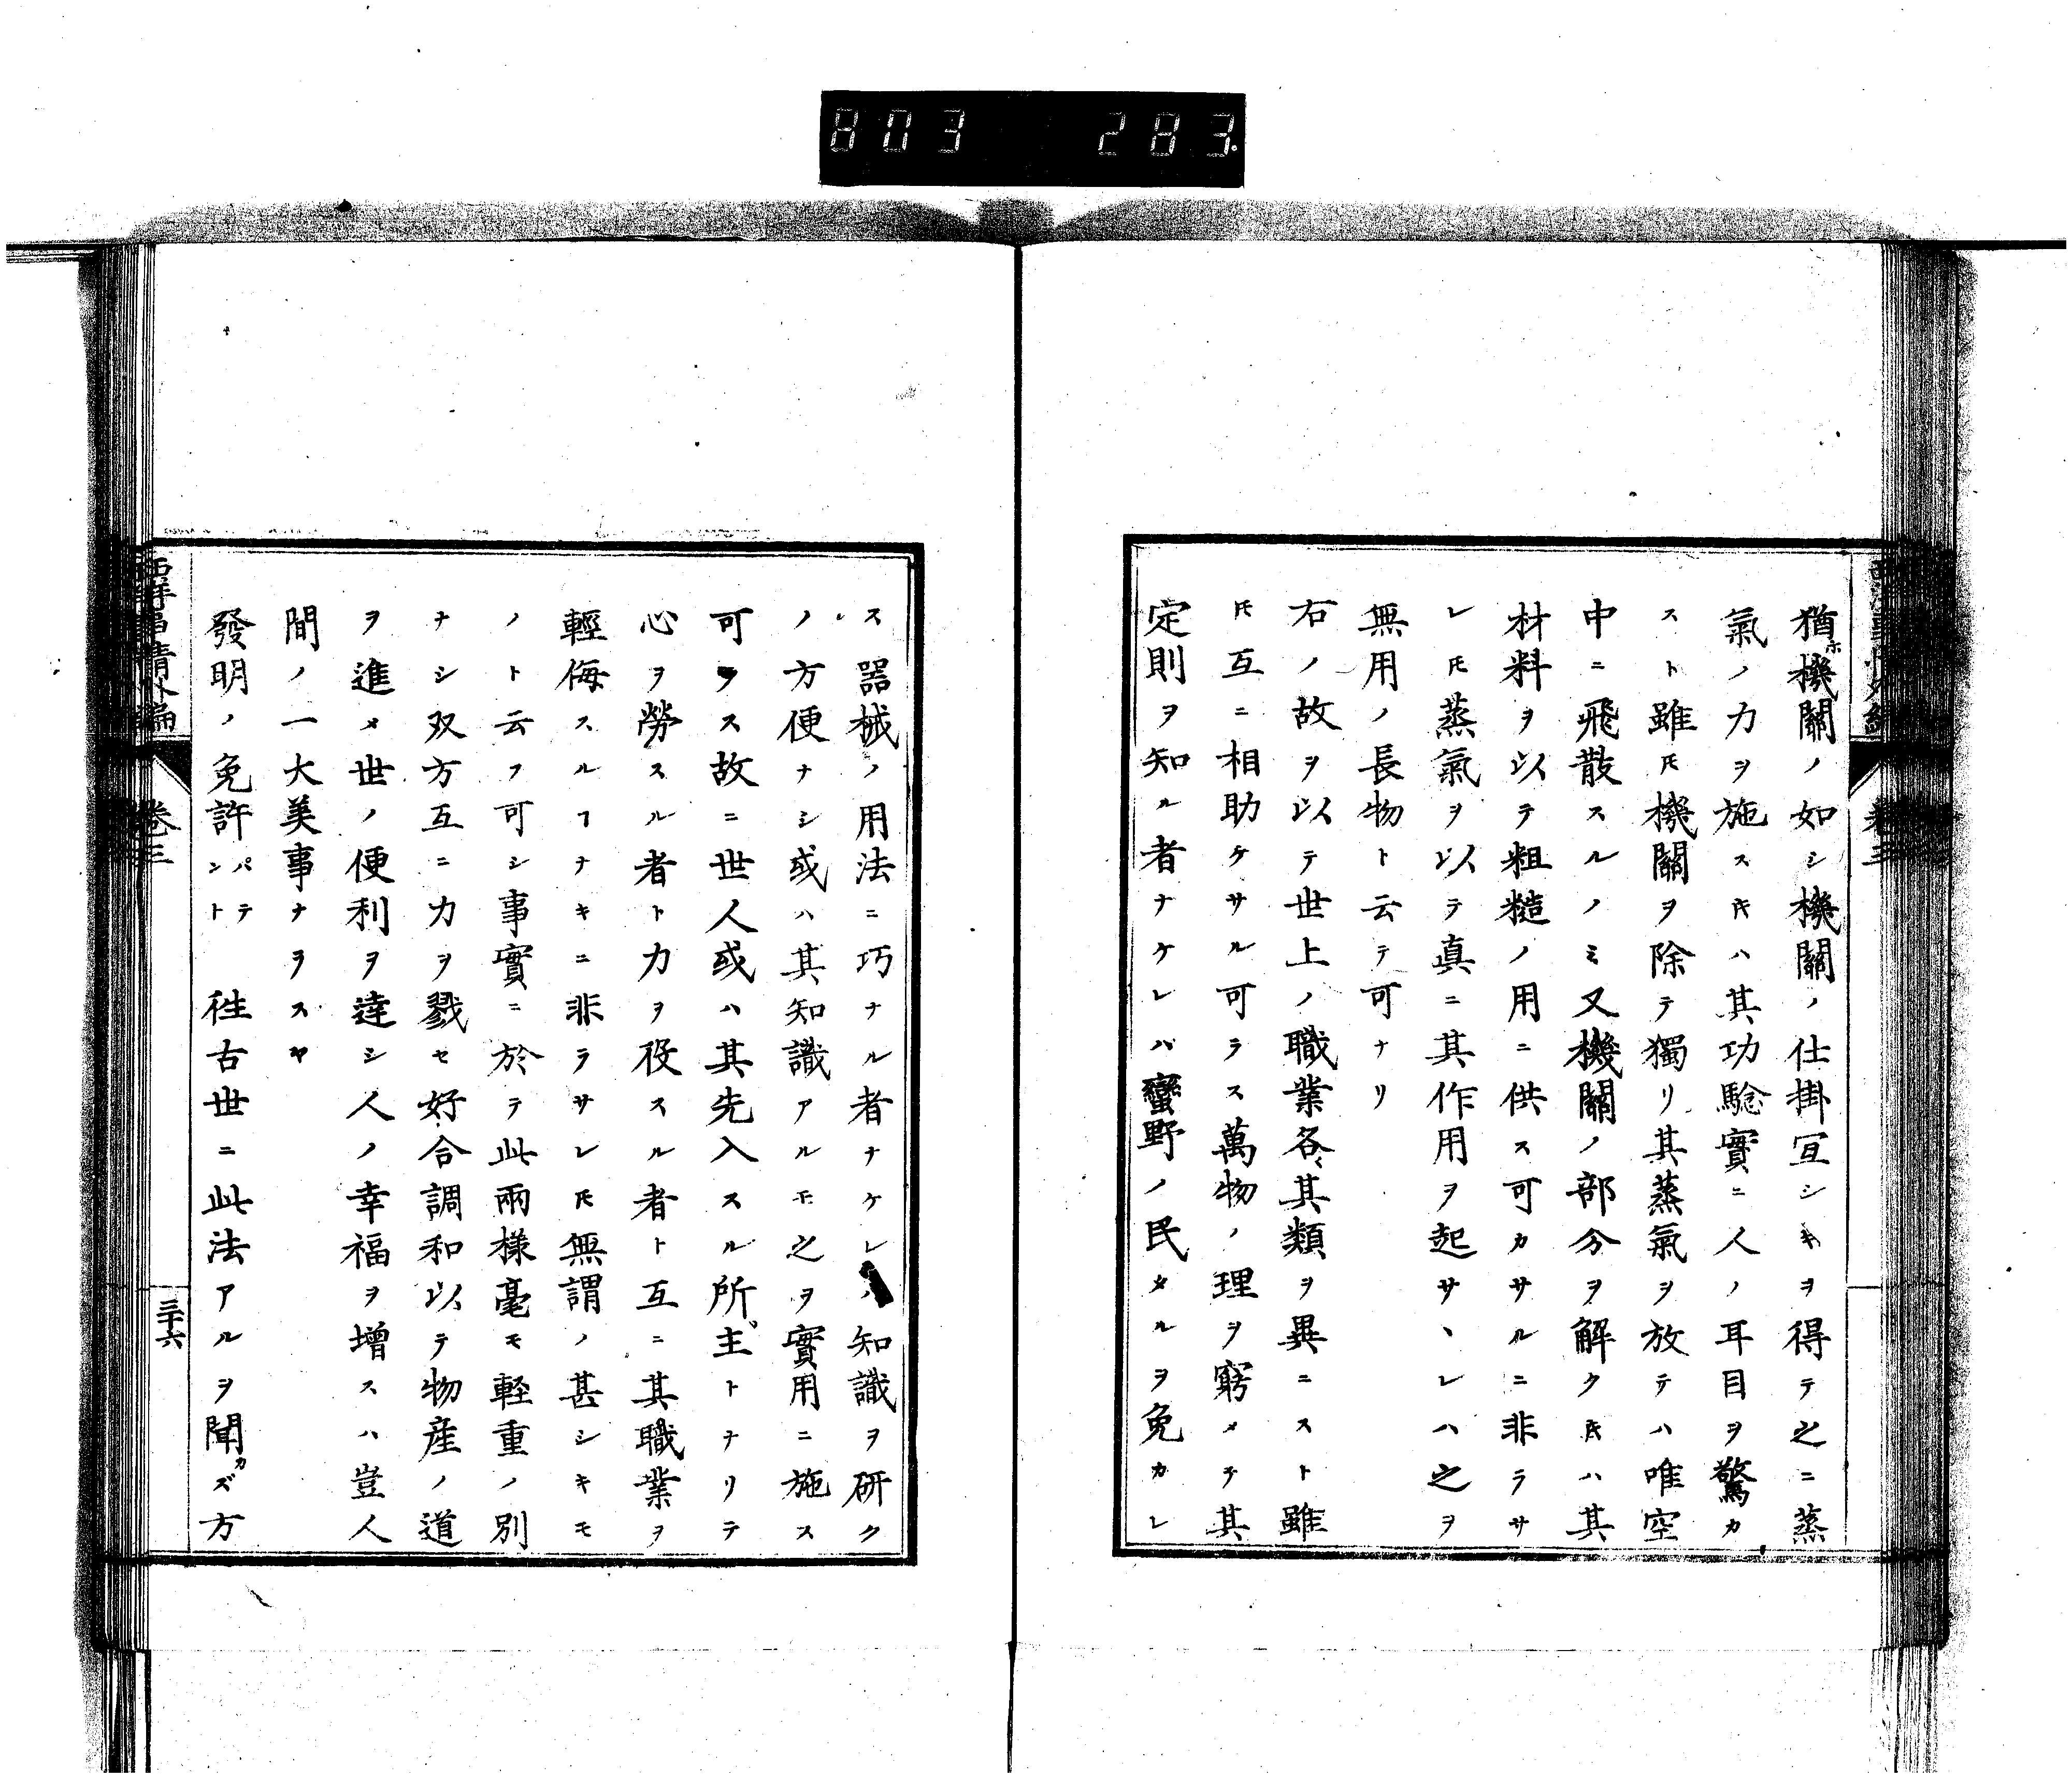 803 283.
猶ホ機關ノ如シ機關ノ仕掛冝シキヲ得テ之ニ蒸
氣ノ力ヲ施スキハ其功騐實ニ人ノ耳目ヲ驚カ
スト雖𪜈機關ヲ除テ獨リ其蒸氣ヲ放テハ唯空
中ニ飛散スルノミ又機關ノ部分ヲ解クキハ其
材料ヲ以テ粗糙ノ用ニ供ス可カサルニ非ラサ
レ𪜈蒸氣ヲ以テ真ニ其作用ヲ起サヽレハ之ヲ
無用ノ長物ト云テ可ナリ
右ノ故ヲ以テ世上ノ職業各〻其類ヲ異ニスト雖
𪜈互ニ相助ケサル可ラス萬物ノ理ヲ窮メテ其
定則ヲ知ル者ナケレバ蠻野ノ民タルヲ免カレ
ス器械ノ用法ニ巧ナル者ナケレハ知識ヲ研ク
ノ方便ナシ或ハ其知識アルモ之ヲ實用ニ施ス
可ラス故ニ世人或ハ其先入スル所主トナリテ
心ヲ勞スル者ト力ヲ役スル者ト互ニ其職業ヲ
輕侮スルヿナキニ非ラサレ𪜈無謂ノ甚シキモ
ノト云フ可シ事實ニ於テ此兩樣毫モ軽重ノ別
ナシ双方互ニ力ヲ戮セ好合調和以テ物産ノ道
ヲ進メ世ノ便利ヲ達シ人ノ幸福ヲ增スハ豈人
間ノ一大美事ナラスヤ
發明ノ免許パテント 徃古世ニ此法アルヲ聞カズ方
西洋事情外編
卷三
三十六